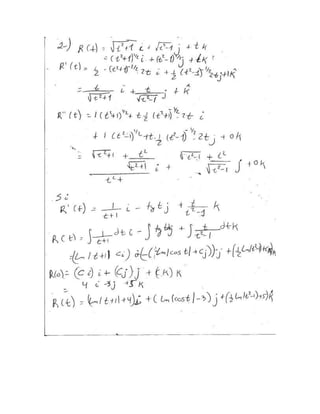 2-) R(t) = √t²+1 i + √t²-1 j + t k
= (t²+1)^½ i + (t²-1)^½ j + tk
R'(t) = ½ (t²+1)^-½ 2t i + ½ (t²-1)^-½ 2t j + 1k
= t/√t²+1 i + t/√t²-1 j + k̂
R''(t) = 1(t²+1)^½ + t ½ (t²+1)^-½ 2t i
+ 1 (t²-1)^½ + t ½ (t²-1)^-½ 2t j + 0k
= √t²+1 + t²/√t²+1 i + √t²-1 + t²/√t²-1 j + 0k
t²+
Si
R'(t) = 1/t+1 i - tg t j + t/t²-1 k
R(t) = ∫ 1/t+1 dt i - ∫ tg t dt j + ∫ t/t²-1 dt k
=(Ln |t+1| + Ci) i - (-Ln|cos t| + Cj) j + (½ Ln|t²-1| + Ck) k
R(0) = (Ci) i + (Cj) j + (Ck) k
= 4 i - 3j + 5 k
R(t) = (Ln|t+1|+4) i + (Ln|cos t|-3) j + (½ Ln|t²-1|+5) k̂